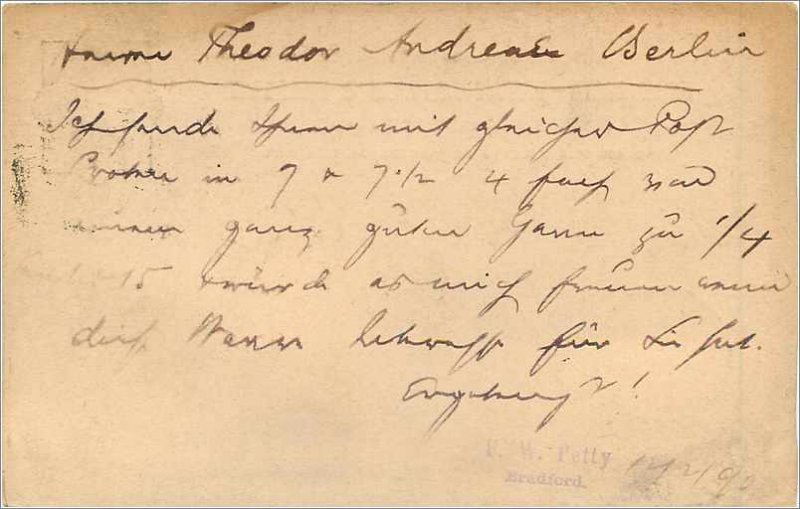 Herrn Theodor Andreae Berlin
Ich sende Ihnen mit gleicher Post
Proben in 7 & 7 1/2 4 fach von
einem ganz guten Garn zu 1/4
15 würde es mich freuen wenn
diese Waare für Sie hat.
Ergebenst!
F. W. Petty
Bradford.